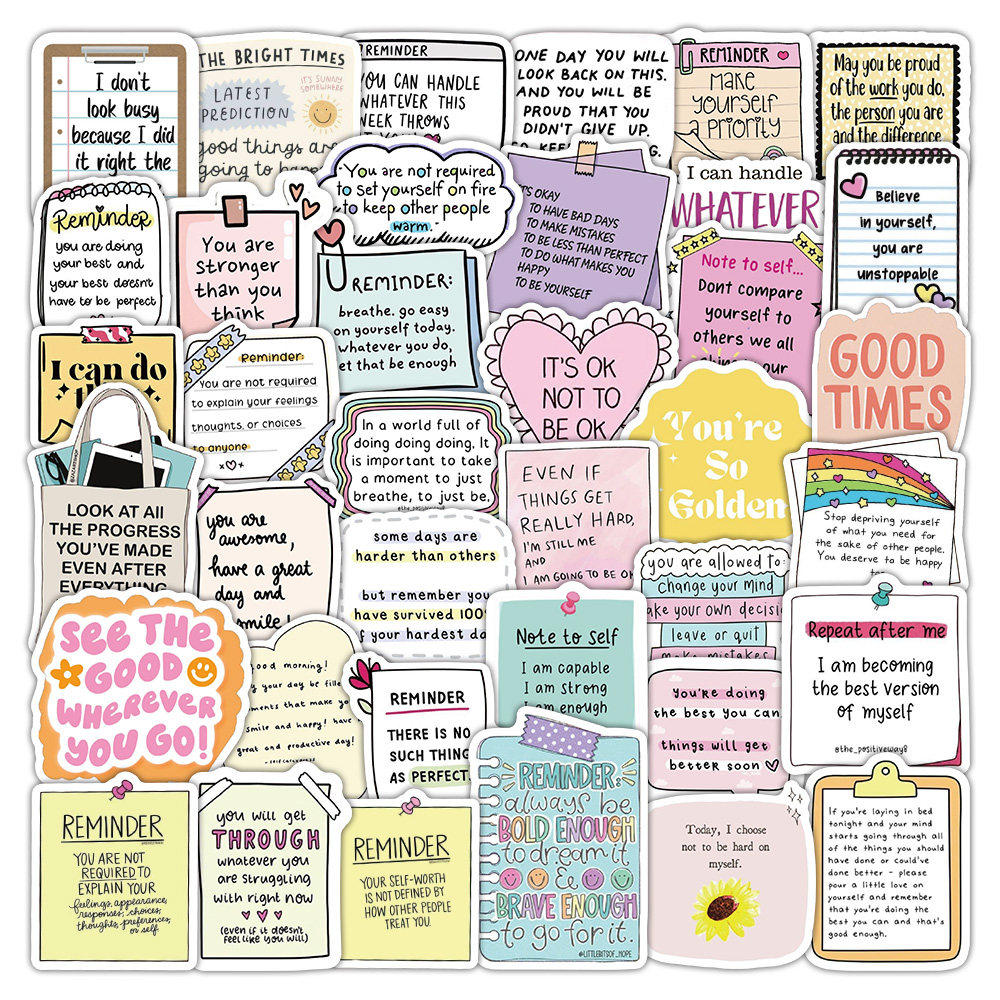 I don't
look busy
because I did
it right the
THE BRIGHT TIMES
LATEST
PREDICTION
IT'S SUNNY
SOMEWHERE
good things are
going to happen
REMINDER
YOU CAN HANDLE
WHATEVER THIS
WEEK THROWS
ONE DAY YOU WILL
LOOK BACK ON THIS.
AND YOU WILL BE
PROUD THAT YOU
DIDN'T GIVE UP.
REMINDER
MAKE
YOURSELF
A PRIORITY
May you be proud
of the work you do,
the person you are
and the difference
Reminder
you are doing
your best and
your best doesn't
have to be perfect
You are
stronger
than you
think
"You are not required
to set yourself on fire
to keep other people
warm."
REMINDER:
breathe. go easy
on yourself today.
whatever you do,
let that be enough
IT'S OKAY
TO HAVE BAD DAYS
TO MAKE MISTAKES
TO BE LESS THAN PERFECT
TO DO WHAT MAKES YOU
HAPPY
TO BE YOURSELF
I can handle
WHATEVER
Note to self...
Dont compare
yourself to
others we all
Believe
in yourself,
you are
unstoppable
I can do
Reminder:
You are not required
to explain your feelings
thoughts, or choices
to anyone.
x♡x
IT'S OK
NOT TO
BE OK
GOOD
TIMES
In a world full of
doing doing doing, It
is important to take
a moment to just
breathe, to just be.
@the_positiveway8
You're
So
Golden
LOOK AT All
THE PROGRESS
YOU'VE MADE
EVEN AFTER
EVERYTHING
you are
awesome,
have a great
day and
smile!
some days are
harder than others
but remember you
have survived 100%
of your hardest da
EVEN IF
THINGS GET
REALLY HARD,
I'M STILL ME
AND
I AM GOING TO BE OK
Stop depriving yourself
of what you need for
the sake of other people.
You deserve to be happy
you are allowed to:
change your mind
make your own decisio
leave or quit
make mistakes
SEE THE
GOOD
WHEREVER
YOU GO!
good morning!
your day be fille
ments that make yo
smile and happy! have
great and productive day!
REMINDER
THERE IS NO
SUCH THING
AS PERFECT.
Note to self
I am capable
I am strong
I am enough
You're doing
the best you can
things will get
better soon ♡
Repeat after me
I am becoming
the best version
of myself
@the_positiveway8
REMINDER
YOU ARE NOT
REQUIRED TO
EXPLAIN YOUR
feelings, appearance,
responses, choices,
thoughts, preferences,
or self
you will get
THROUGH
whatever you
are struggling
with right now
(even if it doesn't
feel like you will)
REMINDER
YOUR SELF-WORTH
IS NOT DEFINED BY
HOW OTHER PEOPLE
TREAT YOU.
REMINDER:
always be
BOLD ENOUGH
to dream it
&
BRAVE ENOUGH
to go for it.
@LITTLEBITSOF_HOPE
Today, I choose
not to be hard on
myself.
If you're laying in bed
tonight and your mind
starts going through all
of the things you should
have done or could've
done better - please
pour a little love on
yourself and remember
that you're doing the
best you can and that's
good enough.